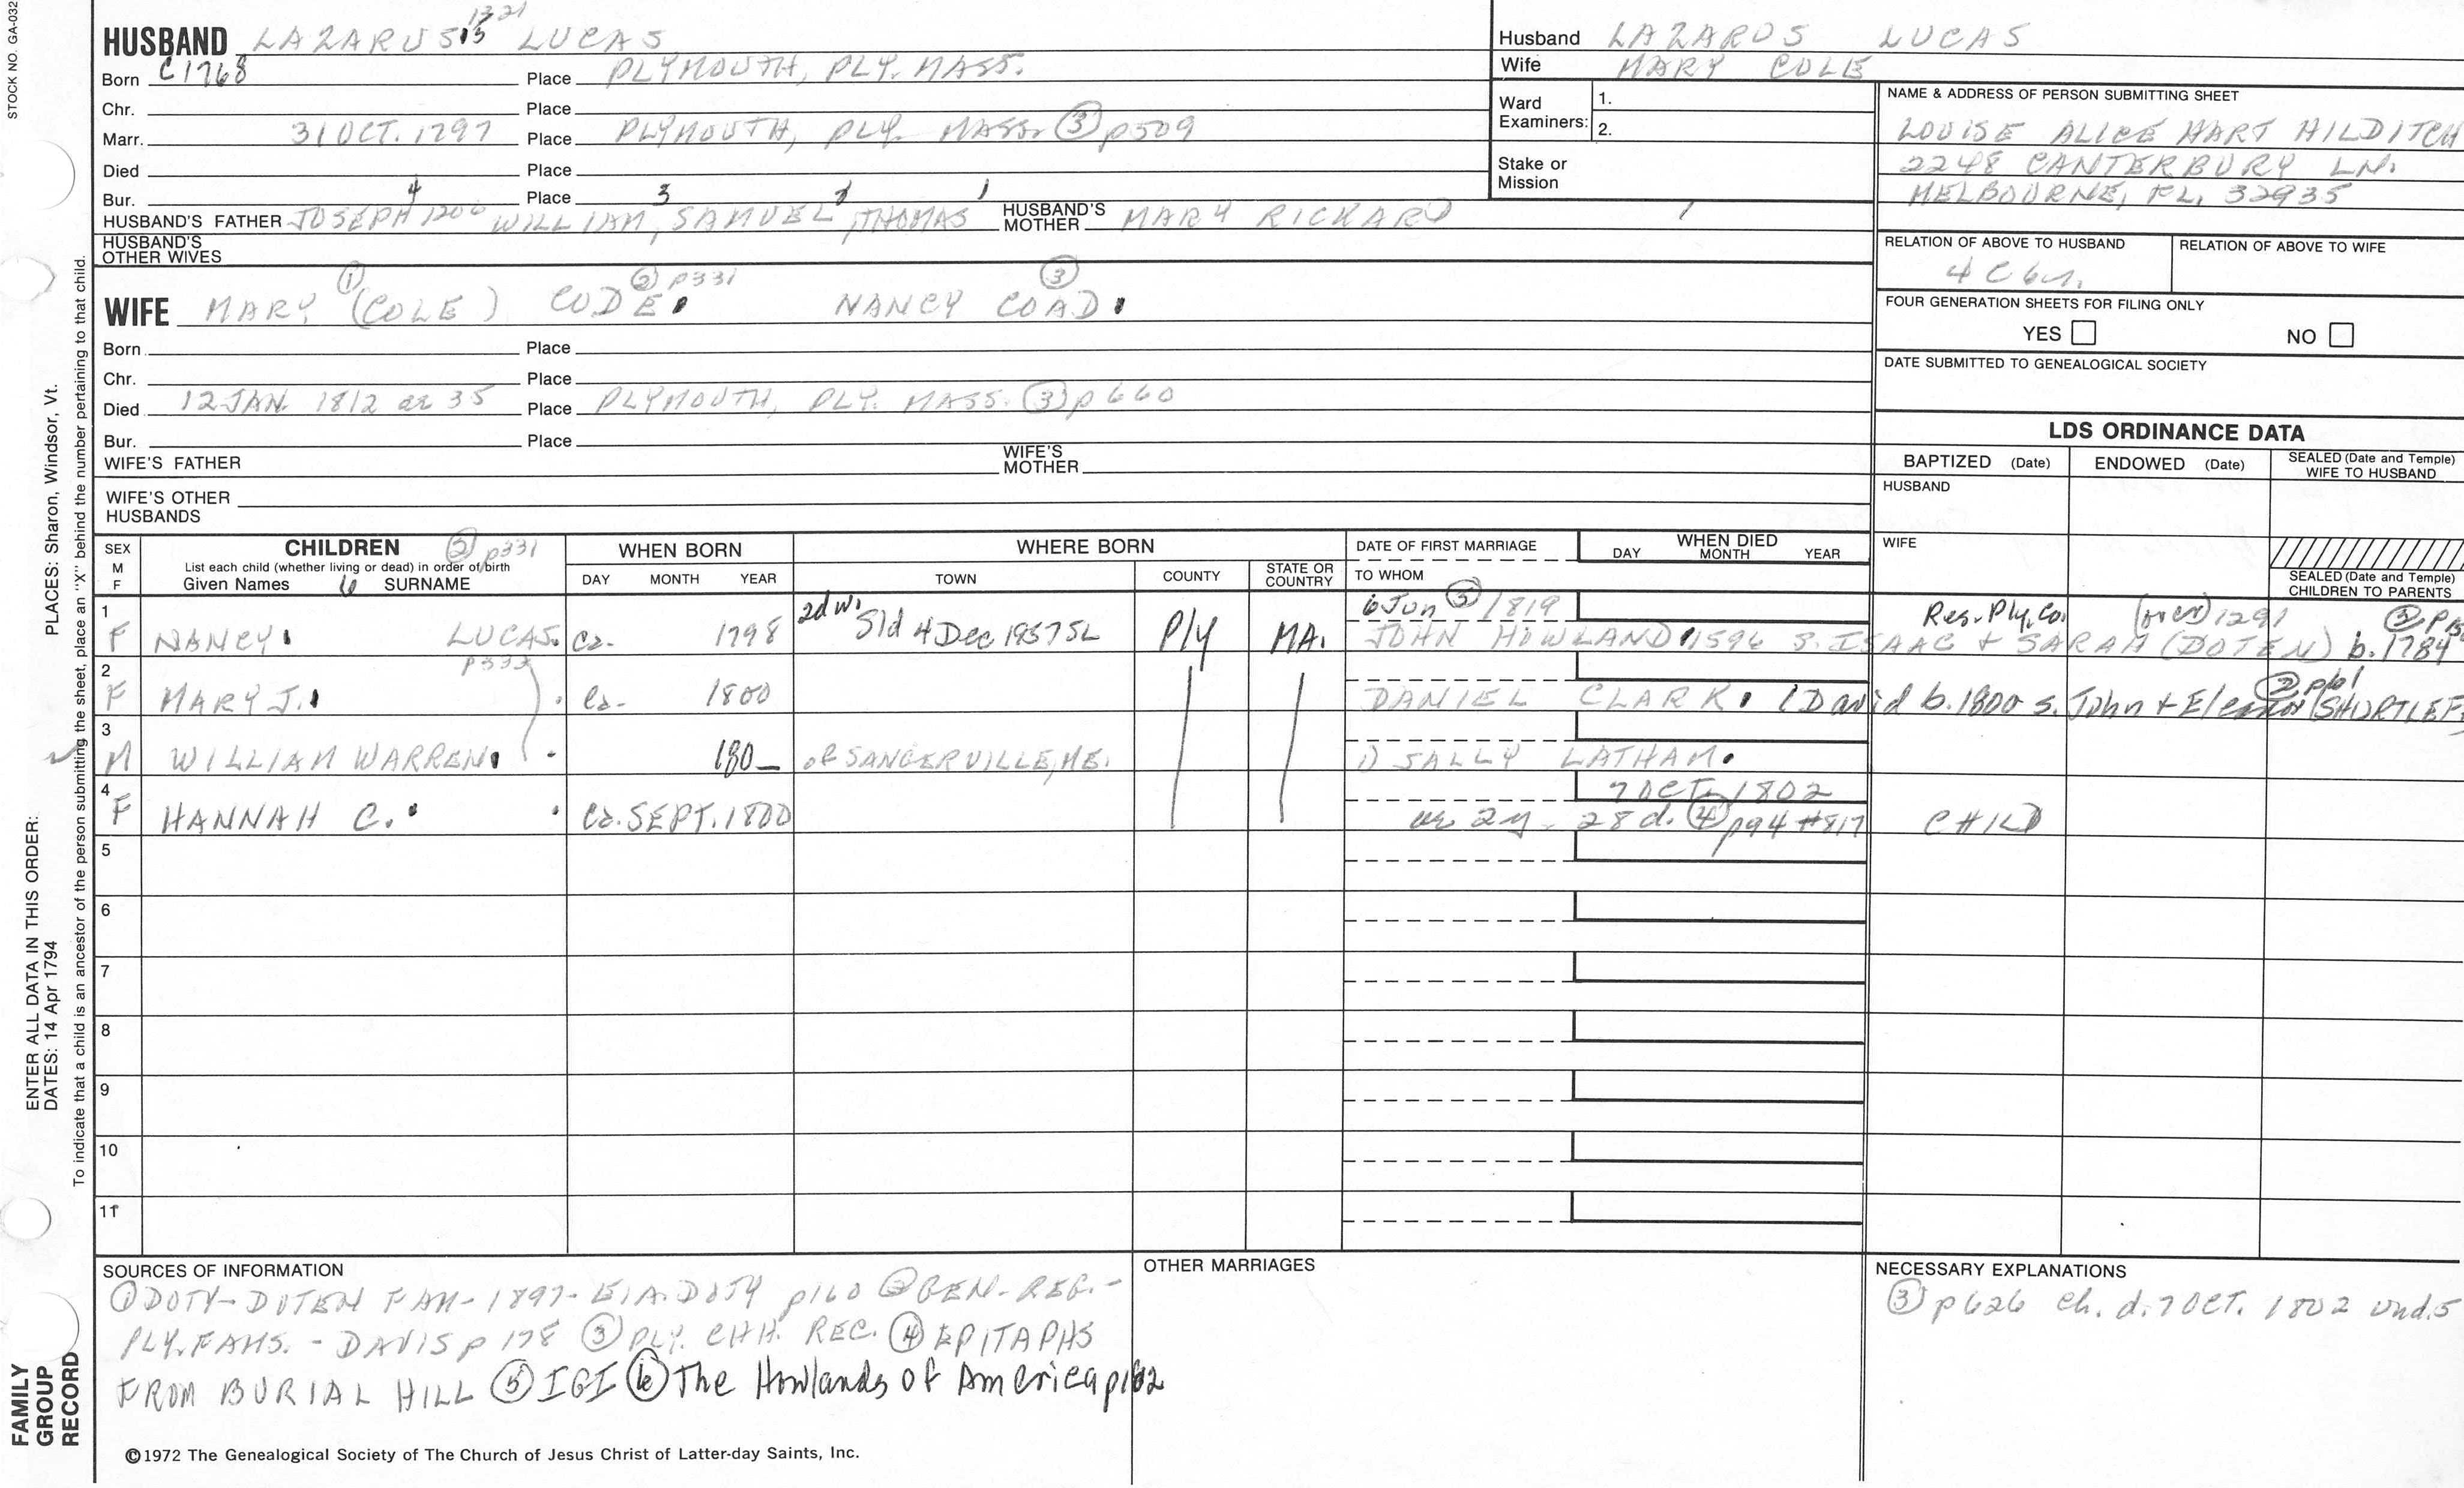 STOCK NO. GA-032
1321
HUSBAND LAZARUS 13 LUCAS
Born C1768 Place PLYMOUTH, PLY. MASS.
Chr. Place
Marr. 31 OCT. 1797 Place PLYMOUTH, PLY. MASS. ③ p509
Died Place
Bur. Place
4 3 2 1
HUSBAND'S FATHER JOSEPH 1206 WILLIAM, SAMUEL, THOMAS HUSBAND'S MOTHER MARY RICKARD
HUSBAND'S OTHER WIVES
Husband LAZARUS LUCAS
Wife MARY COLE
Ward Examiners: 1.
2.
Stake or Mission
NAME & ADDRESS OF PERSON SUBMITTING SHEET
LOUISE ALICE HART HILDITCH
2248 CANTERBURY LN.
MELBOURNE, FL. 32935
RELATION OF ABOVE TO HUSBAND RELATION OF ABOVE TO WIFE
4 C 6
FOUR GENERATION SHEETS FOR FILING ONLY
YES NO
DATE SUBMITTED TO GENEALOGICAL SOCIETY
① ② p331 ③
WIFE MARY (COLE) CODE NANCY COAD
Born Place
Chr. Place
Died 12 JAN. 1812 ae 35 Place PLYMOUTH, PLY. MASS. ③ p660
Bur. Place
WIFE'S FATHER WIFE'S MOTHER
WIFE'S OTHER HUSBANDS
LDS ORDINANCE DATA
BAPTIZED (Date) ENDOWED (Date) SEALED (Date and Temple) WIFE TO HUSBAND
HUSBAND
WIFE
SEALED (Date and Temple) CHILDREN TO PARENTS
SEX M F
CHILDREN ② p331
List each child (whether living or dead) in order of birth
Given Names 6 SURNAME
WHEN BORN
DAY MONTH YEAR
WHERE BORN
TOWN COUNTY STATE OR COUNTRY
DATE OF FIRST MARRIAGE
TO WHOM
WHEN DIED
DAY MONTH YEAR
1 2d w. 6 Jun ⑤ 1819 Res. Ply, Co. (over) 1291 ②
F NANCY LUCAS ca. 1798 Sld 4 Dec 1957 SL Ply MA. JOHN HOWLAND 1596 S. ISAAC + SARAH (DOTEN) b. 1784
p333
2 ② p61
F MARY J. ca. 1800 DANIEL CLARK (David b. 1800 s. John + Eleanor (SHURTLEFF
3
M WILLIAM WARREN 180_ of SANGERVILLE, ME. 1) SALLY LATHAM
4 7 OCT. 1802
F HANNAH C. Ca. SEPT. 1800 ae 2y - 28 d. ④ p94 #817 CHILD
5
6
7
8
9
10
11
SOURCES OF INFORMATION
① DOTY-DOTEN FAM-1897-E.A. DOTY p160 ② GEN-REG.-
PLY. FAMS. - DAVIS p 178 ③ PLY. CHH. REC. ④ EPITAPHS
FROM BURIAL HILL ⑤ IGI ⑥ The Howlands of America p162
OTHER MARRIAGES
NECESSARY EXPLANATIONS
③ p626 ch. d. 7 OCT. 1802 und. 5
©1972 The Genealogical Society of The Church of Jesus Christ of Latter-day Saints, Inc.
FAMILY GROUP RECORD
ENTER ALL DATA IN THIS ORDER:
DATES: 14 Apr 1794
PLACES: Sharon, Windsor, Vt.
To indicate that a child is an ancestor of the person submitting the sheet, place an "X" behind the number pertaining to that child.